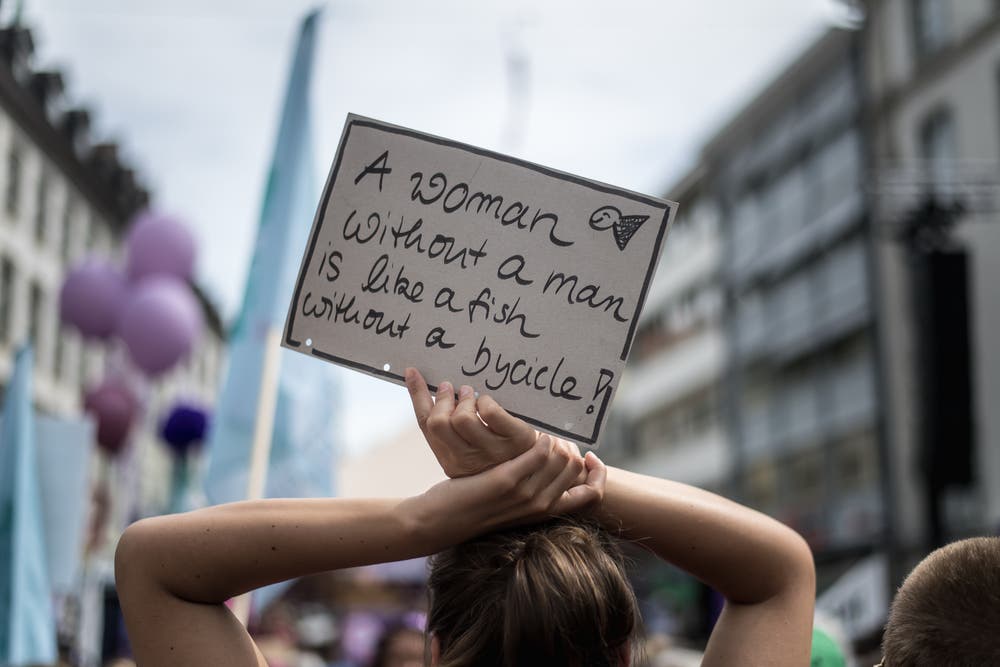 A woman
without a man
is like a fish
without a bycicle!